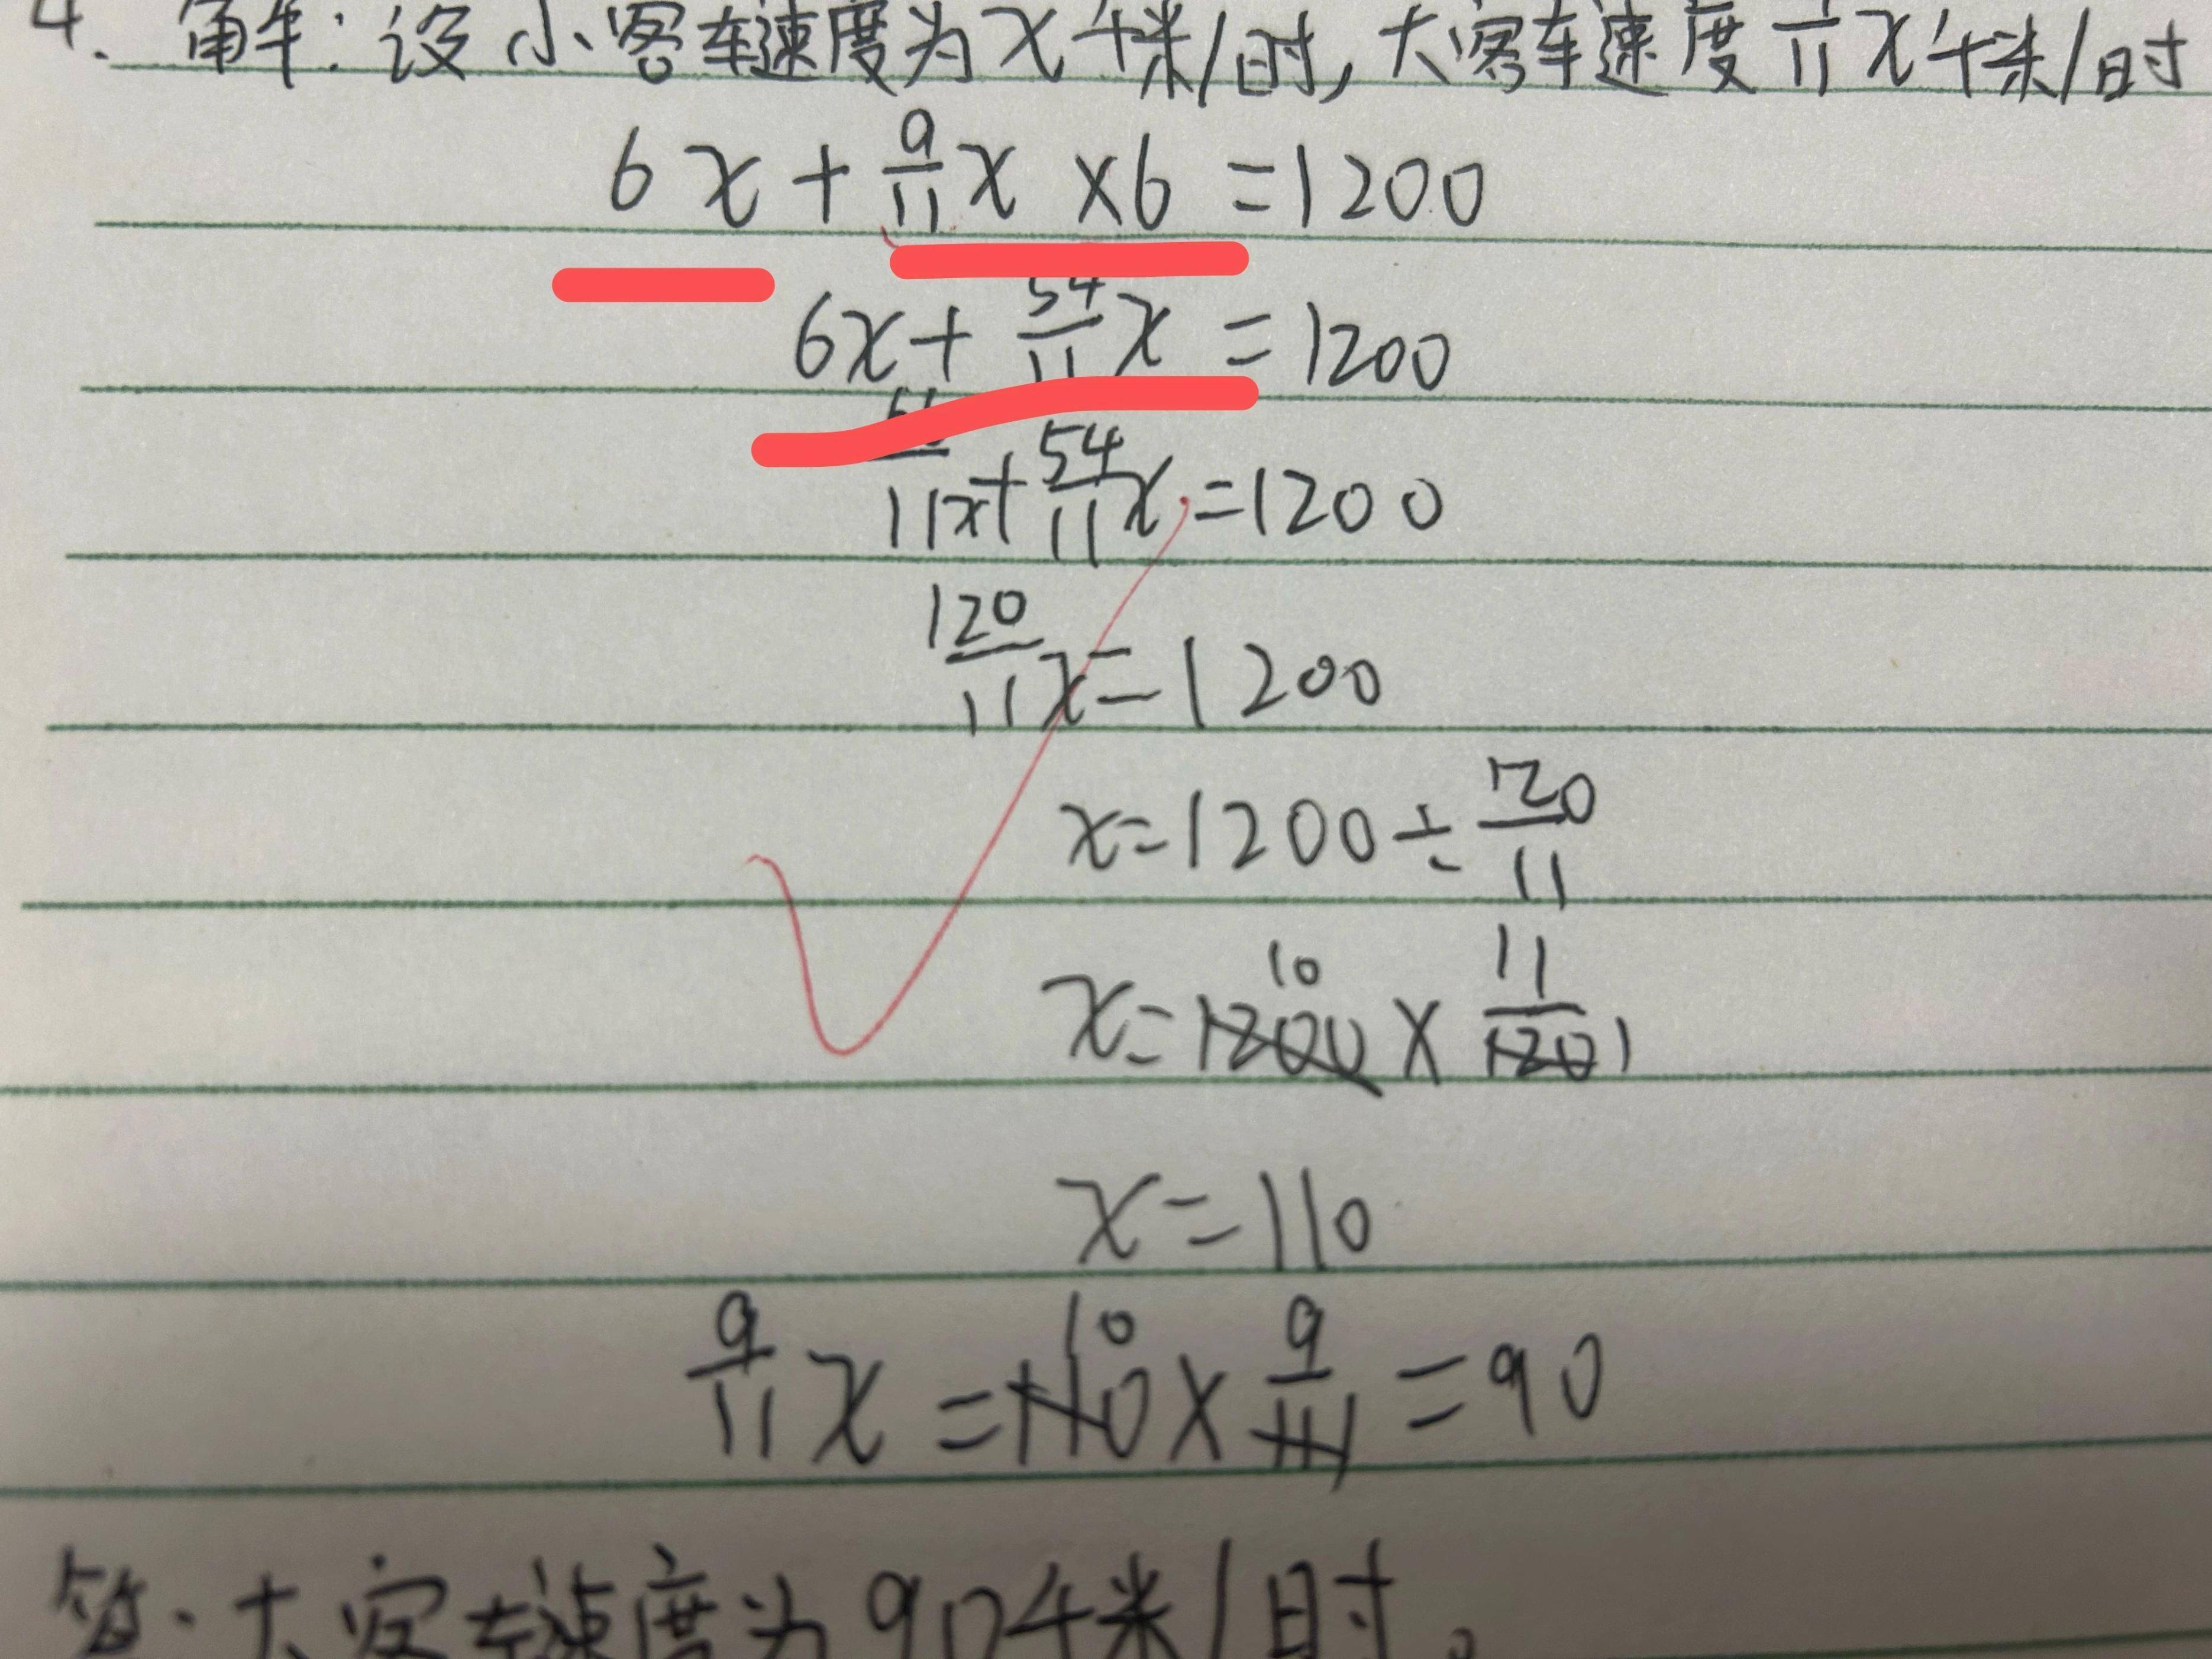 4. 解:设小客车速度为x千米/时,大客车速度9/11x千米/时
6x+9/11x×6=1200
6x+54/11x=1200
66/11x+54/11x=1200
120/11x=1200
x=1200÷120/11
x=1200×11/120 10 1
x=110
9/11x=110×9/11=90 10 1
答:大客车速度为90千米/时。